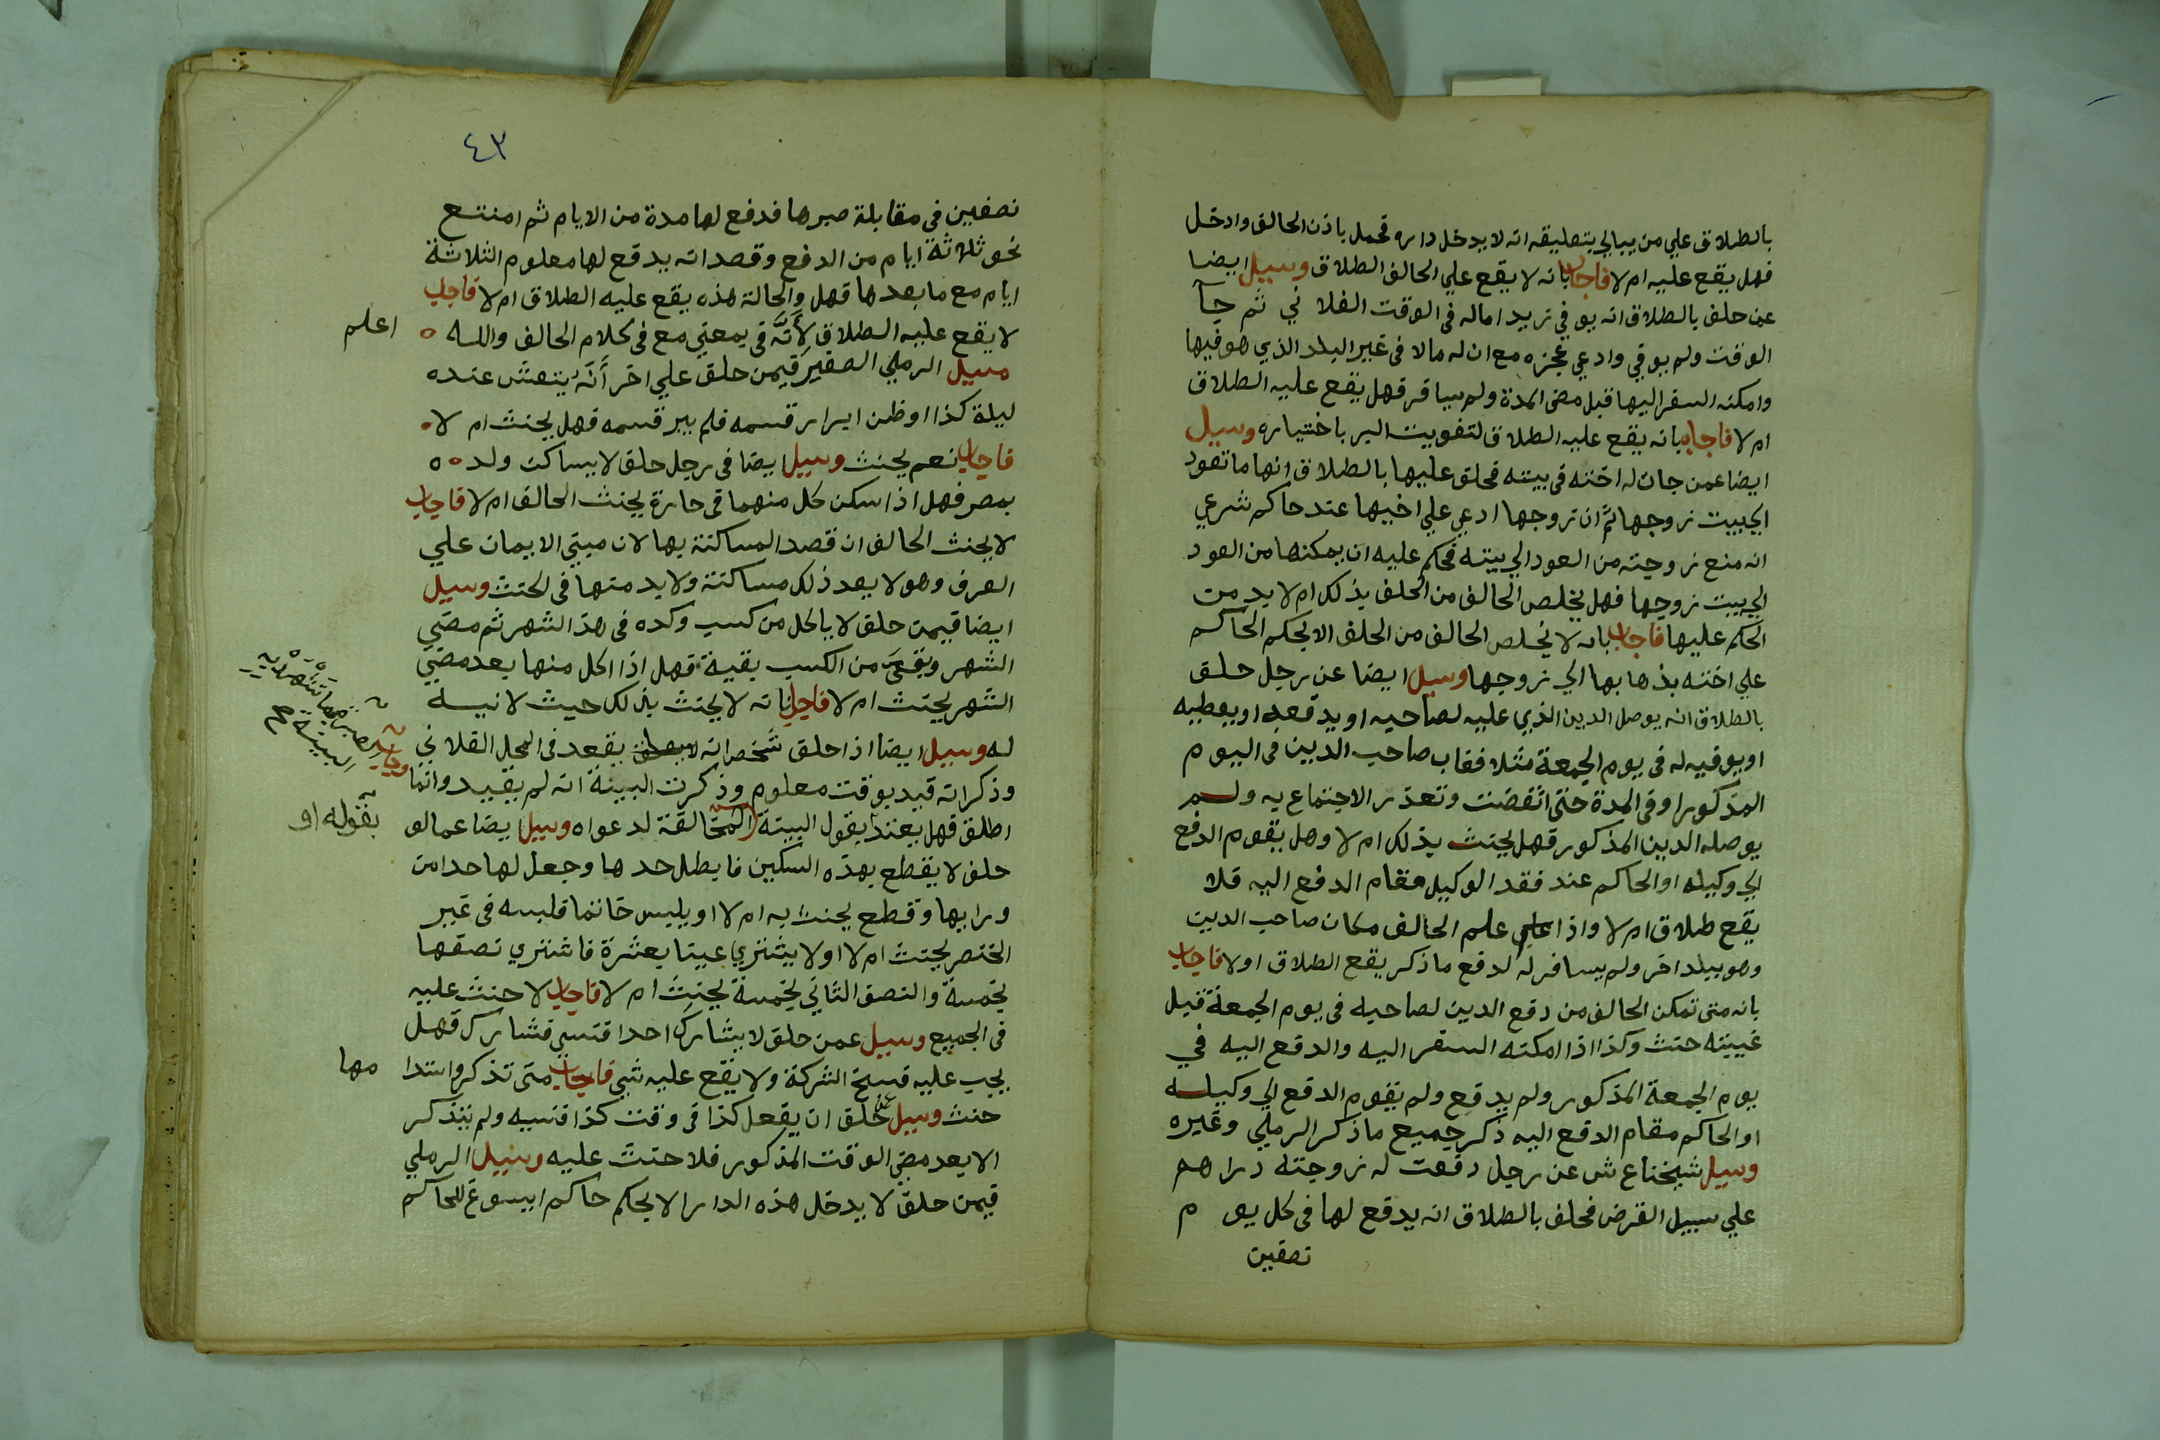 بالطلاق علي من يبالي بتعليقه انه لا يدخل داره فحمل باذن الحالف وادخل
فهل يقع عليه ام لا فاجاب بانه لا يقع علي الحالف الطلاق وسيل ايضا
عمن حلف بالطلاق انه يوفي زيدا ماله في الوقت الفلاني ثم جآ
الوقت ولم يوفي وادعي عجزه مع ان له مالا في غير البلد الذي هو فيها
وامكنه السفر اليها قبل مضي المدة ولم يسافر فهل يقع عليه الطلاق
ام لا فاجاب بانه يقع عليه الطلاق لتفويت البر باختياره وسيل
ايضا عمن جات له اخته في بيته فحلق عليها بالطلاق انها ما تعود
الي بيت زوجها ثم ان زوجها ادعي علي اخيها عند حاكم شرعي
انه منع زوجته من العود الي بيته فحكم عليه ان يمكنها من العود
الي بيت زوجها فهل يخلص الحالف من الحلف بذلك ام لا بد من
الحكم عليها فاجاب بانه لا يخلص الحالف من الحلف الا بحكم الحاكم
علي اخته بذهابها الي زوجها وسيل ايضا عن رجل حلف
بالطلاق انه يوصل الدين الذي عليه لصاحبه او يدفعه او يعطيه
او يوفيه له في يوم الجمعة مثلا فغاب صاحب الدين في اليوم
المذكور او في المدة حتي انقضت وتعذر الاجتماع به ولم
يوصله الدين المذكور فهل يحنث بذلك ام لا وهل يقوم الدفع
الي وكيله او الحاكم عند فقد الوكيل مقام الدفع اليه فلا
يقع طلاق ام لا واذا علم الحالف مكان صاحب الدين
وهو ببلد اخر ولم يسافر له لدفع ما ذكر يقع الطلاق اولا فاجاب
بانه متي تمكن الحالف من دفع الدين لصاحبه في يوم الجمعة قبل
غيبته حنث وكذا اذا امكنه السفر اليه والدفع اليه في
يوم الجمعة المذكور ولم يدفع ولم يقوم الدفع الي وكيله
او الحاكم مقام الدفع اليه ذكر جميع ما ذكر الرملي وغيره
وسيل شيخنا ع ش عن رجل دفعت له زوجته دراهم
علي سبيل القرض فحلف بالطلاق انه يدفع لها في كل يوم
نصفين
٤٣
نصفين في مقابلة صبرها فدفع لها مدة من الايام ثم امتنع
نحو ثلاثة ايام من الدفع وقصد انه يدفع لها معلوم الثلاثة
ايام مع ما بعدها فهل والحالة هذه يقع عليه الطلاق ام لا فاجاب
لا يقع عليه الطلاق لانه في بمعني مع في كلام الحالف والله
اعلم
مسيل الرملي الصغير فيمن حلق علي اخر انه يتعش عنده
ليلة كذا او ظن ابرار قسمه فلم يبر قسمه فهل يحنث ام لا
فاجاب نعم يحنث وسيل ايضا في رجل حلق لا يساكن ولده
بمصر فهل اذا سكن كل منهما في حارة يحنث الحالف ام لا فاجاب
لا يحنث الحالف ان قصد المساكنة بها لان مبني الايمان علي
العرف وهو لا يعد ذلك مساكنة ولا بد منها في الحنث وسيل
ايضا فيمن حلق لا ياكل من كسب وكده في هذا الشهر ثم مضي
الشهر وبقي من الكسب بقية فهل اذا اكل منها بعد مضي
الشهر يحنث ام لا فاجاب بانه لا يحنث بذلك حيث لا نية
له وسيل ايضا اذا حلق شخص انه يقعد في المحل الفلاني
وذكر انه قيد بوقت معلوم وذكرت البينة انه لم يقيد وانما
اطلق فهل يعتد بقول البينة المخالفة لدعواه وسيل ايضا عما لو
بقوله او
حلف لا يقطع بهذه السكين فابطل حدها وجعل لها حدا من
ورايها وقطع يحنث به ام لا او يلبس خاتما فلبسه في غير
الخنصر يحنث ام لا او لا يشتري عينا بعشرة فاشتري نصفها
بخمسة والنصف الثاني بخمسة يحنث ام لا فاجاب لا حنث عليه
في الجميع وسيل عمن حلق لا يشارك احدا فنسي فشارك فهل
يجب عليه فسخ الشركة ولا يقع عليه شي فاجاب متي تذكر واستدا
مها
حنث وسيل عمن حلق ان يفعل كذا في وقت كذا فنسيه ولم يتذكر
الا بعد مضي الوقت المذكور فلا حنث عليه وسيل الرملي
فيمن حلق لا يدخل هذه الدار الا بحكم حاكم ايسوغ للحاكم